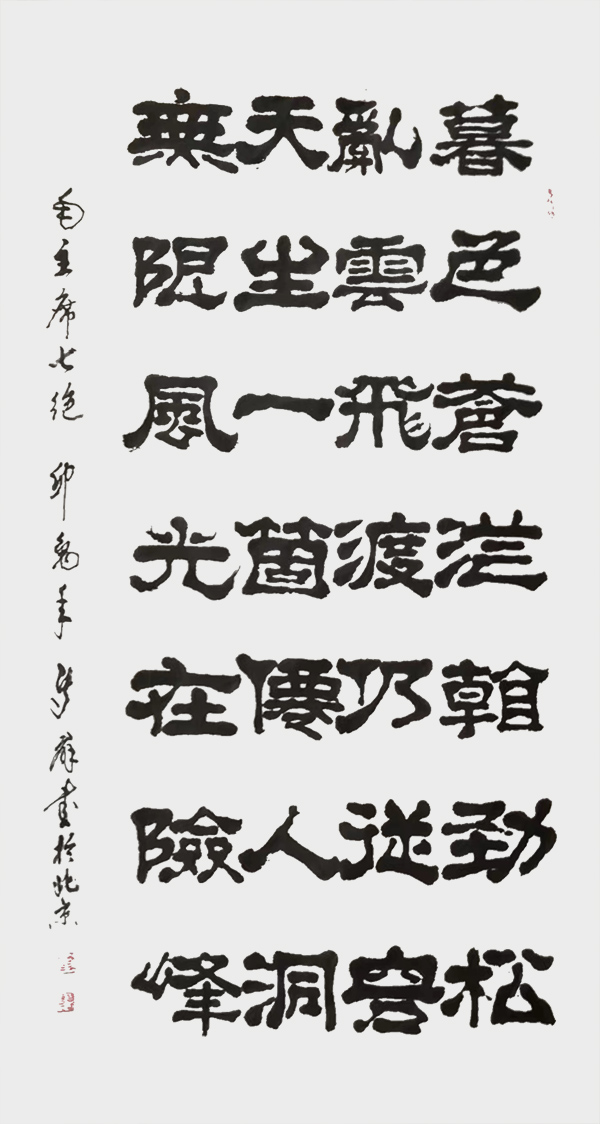 暮色蒼茫看勁松
亂雲飛渡仍從容
天生一箇僊人洞
無限風光在險峰
毛主席七絕 卯兔年 書於北京